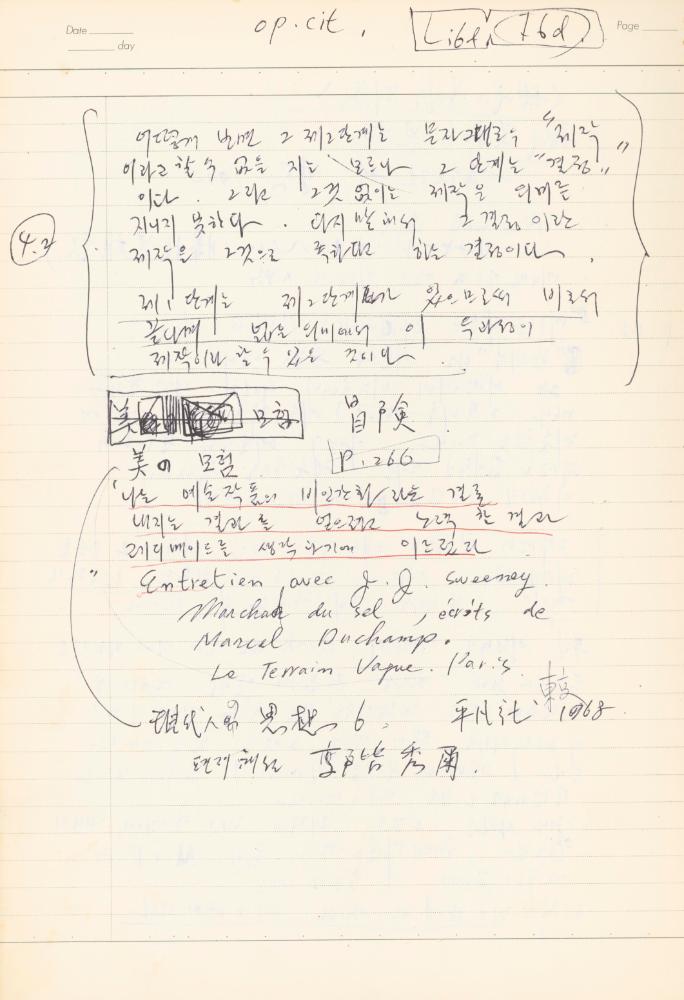 Date
day
op.cit.
Page
어떻게 보면 그 제2단계는 문자그대로의 "제작"
이라고 할 수 없을 지는 모르나 그 단계는 "결정"
이다. 그리고 그것 없이는 제작은 의미를
지니지 못한다. 다시 말해서 그 결정이란
4.2
제작을 그것으로 족하다고 하는 결정이다.
제1단계는 제2단계가 있으므로써 비로서
넓은 의미에서 이
제작이라 할 수 있을 것이다
美 모험 冒険
美의 모험 P.266
"나는 예술작품의 비인간화라는 결론
내지는 결과를 얻으려고 노력한 결과
레디메이드를 생각하기에 이르렀다
" Entretien avec J. J. Sweeney.
Marchand du sel, écrits de
Marcel Duchamp.
Le Terrain Vague. Paris.
現代人の思想 6, 平凡社 1968
高階秀爾.